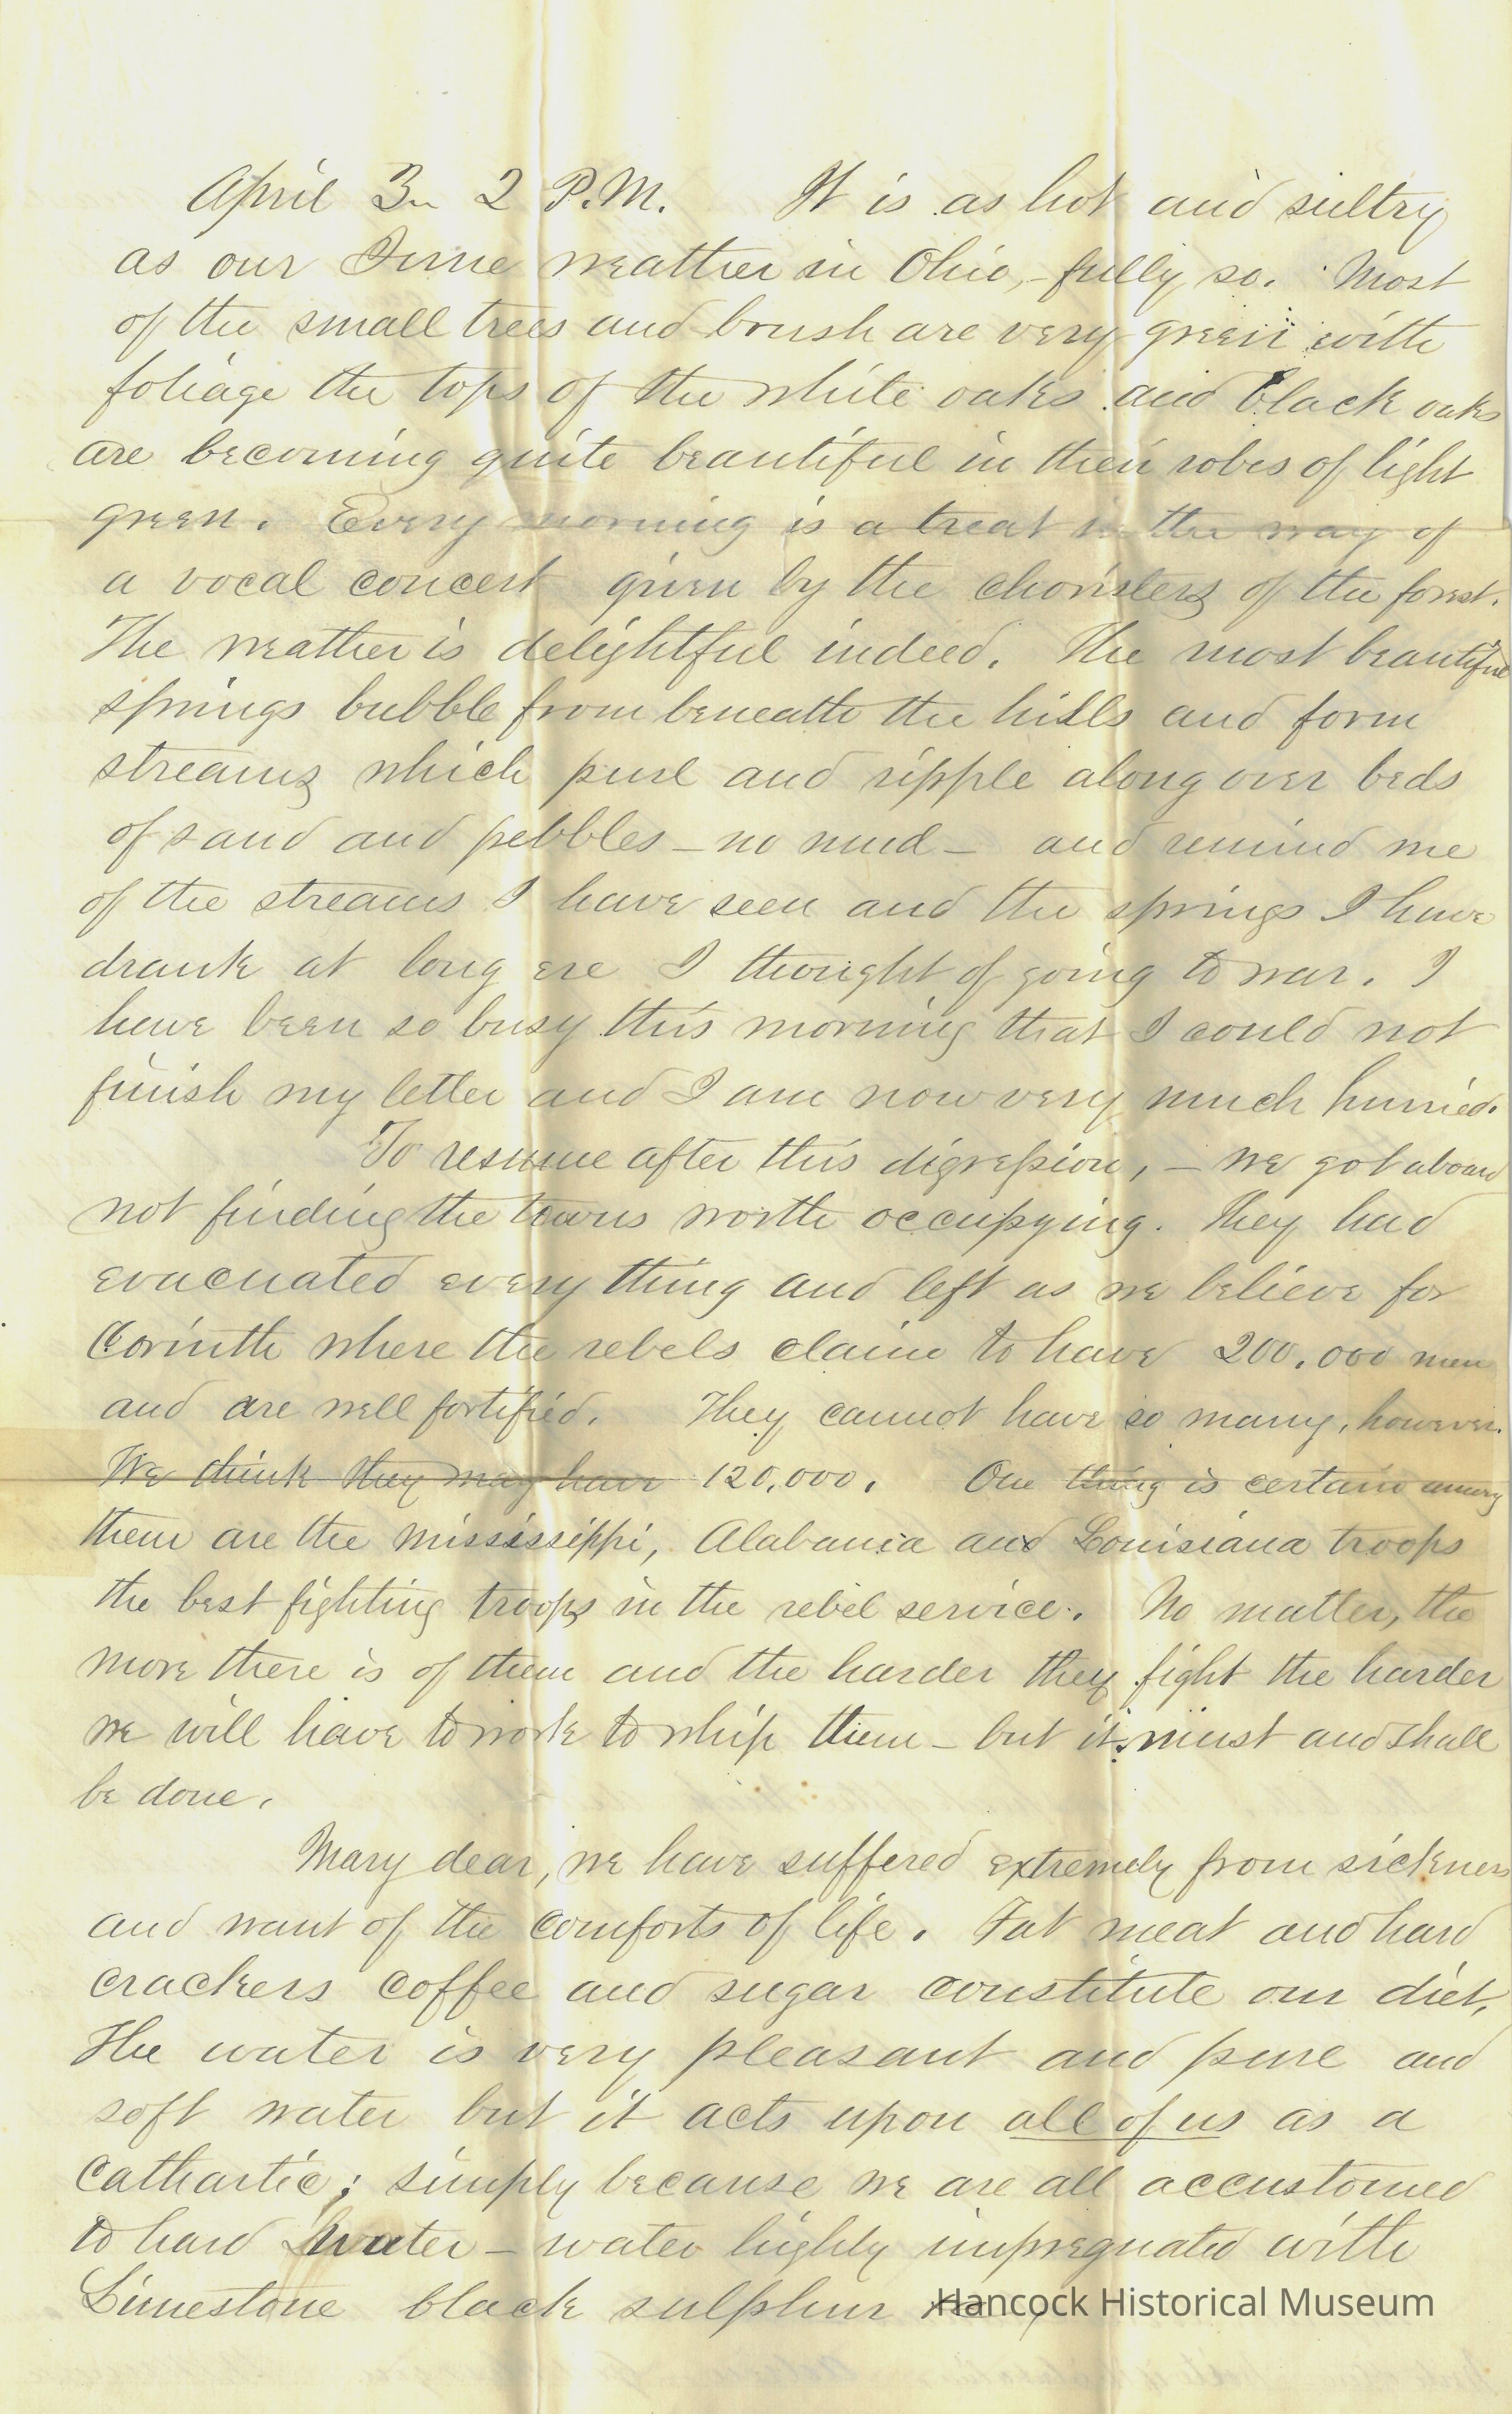 April 3rd 2 P.M. It is as hot and sultry
as our June weather in Ohio, – fully so. Most
of the small trees and brush are very green with
foliage the tops of the white oaks and black oaks
are becoming quite beautiful in their robes of light
green. Every morning is a treat in the way of
a vocal concert given by the choristers of the forest.
The weather is delightful indeed. The most beautiful
springs bubble from beneath the hills and form
streams which purl and ripple along over beds
of sand and pebbles – no mud – and remind me
of the streams I have seen and the springs I have
drank at long ere I thought of going to war. I
have been so busy this morning that I could not
finish my letter and I am now very much hurried.
To resume after this digression, – we got aboard
not finding the towns worth occupying. They had
evacuated every thing and left as we believe for
Corinth where the rebels claim to have 200,000 men
and are well fortified. They cannot have so many, however.
We think they may have 120,000. One thing is certain among
them are the Mississippi, Alabama and Louisiana troops
the best fighting troops in the rebel service. No matter, the
more there is of them and the harder they fight the harder
we will have to work to whip them – but it must and shall
be done.
Mary dear, we have suffered extremely from sickness
and want of the comforts of life. Fat meat and hard
crackers coffee and sugar constitute our diet,
The water is very pleasant and pure and
soft water but it acts upon all of us as a
cathartic; simply because we are all accustomed
to hard water – water highly impregnated with
Limestone black sulphur
Hancock Historical Museum